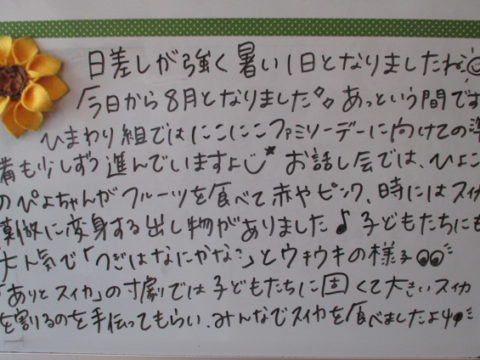 日差しが強く暑い1日となりましたね
今日から8月となりました。あっという間です
ひまわり組ではにこにこファミリーデーに向けての準
備も少しずつ進んでいますよ お話し会では、ひよこ
のぴよちゃんがフルーツを食べて赤やピンク、時にはスイカ
模様に変身する出し物がありました♪子どもたちにも
大人気で「つぎはなにかな?」とウキウキの様子
「ありとスイカ」の寸劇では子どもたちに固くて大きいスイカ
を割るのを手伝ってもらい、みんなでスイカを食べましたよ